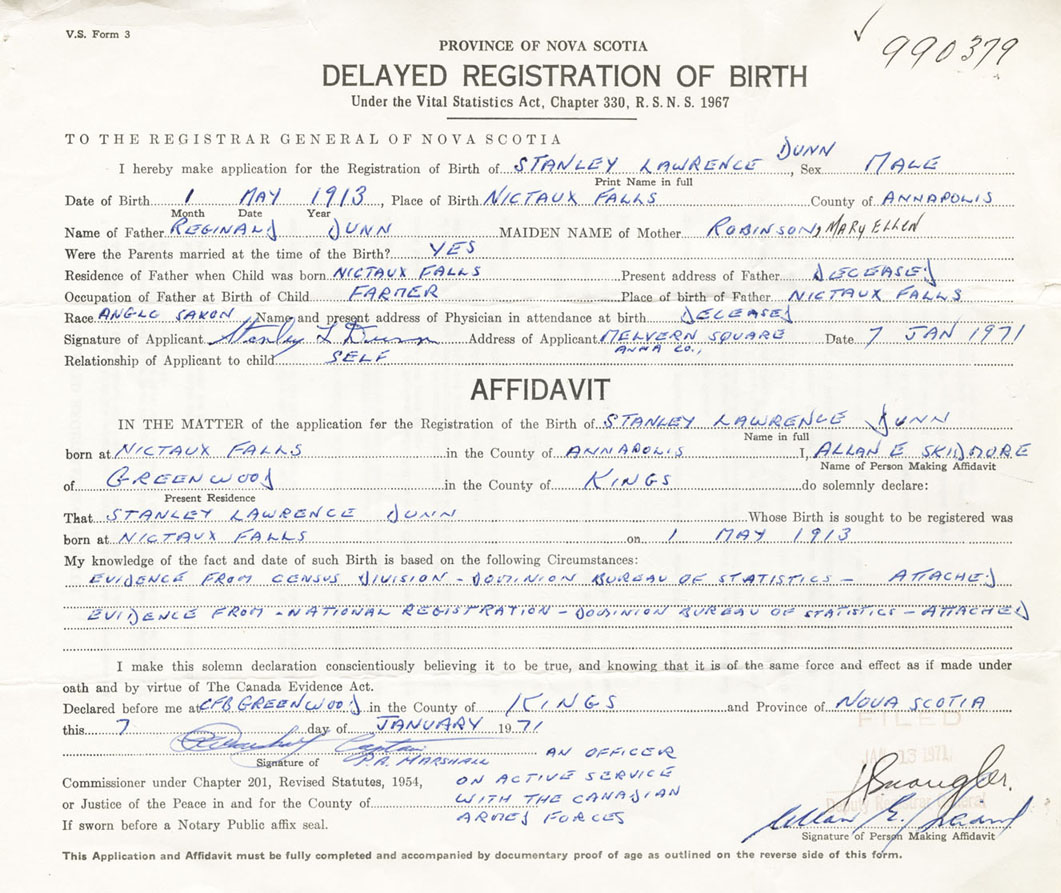 V.S. Form 3
990379
PROVINCE OF NOVA SCOTIA
DELAYED REGISTRATION OF BIRTH
Under the Vital Statistics Act, Chapter 330, R. S. N. S. 1967
TO THE REGISTRAR GENERAL OF NOVA SCOTIA
I hereby make application for the Registration of Birth of STANLEY LAWRENCE DUNN, Sex MALE
Print Name in full
Date of Birth 1 MAY 1913, Place of Birth NICTAUX FALLS County of ANNAPOLIS
Month Date Year
Name of Father REGINALD DUNN MAIDEN NAME of Mother ROBINSON, MARY ELLEN
Were the Parents married at the time of the Birth? YES
Residence of Father when Child was born NICTAUX FALLS Present address of Father DECEASED
Occupation of Father at Birth of Child FARMER Place of birth of Father NICTAUX FALLS
Race ANGLO SAXON Name and present address of Physician in attendance at birth DECEASED
Signature of Applicant Stanley L Dunn Address of Applicant MELVERN SQUARE Date 7 JAN 1971
ANNA CO.,
Relationship of Applicant to child SELF
AFFIDAVIT
IN THE MATTER of the application for the Registration of the Birth of STANLEY LAWRENCE DUNN
Name in full
born at NICTAUX FALLS in the County of ANNAPOLIS I, ALLAN E SKIDMORE
Name of Person Making Affidavit
of GREENWOOD in the County of KINGS do solemnly declare:
Present Residence
That STANLEY LAWRENCE DUNN Whose Birth is sought to be registered was
born at NICTAUX FALLS on 1 MAY 1913
My knowledge of the fact and date of such Birth is based on the following Circumstances:
EVIDENCE FROM CENSUS DIVISION - DOMINION BUREAU OF STATISTICS - ATTACHED
EVIDENCE FROM - NATIONAL REGISTRATION - DOMINION BUREAU OF STATISTICS - ATTACHED
I make this solemn declaration conscientiously believing it to be true, and knowing that it is of the same force and effect as if made under
oath and by virtue of The Canada Evidence Act.
Declared before me at CFB GREENWOOD in the County of KINGS and Province of NOVA SCOTIA
this 7 day of JANUARY 1971
FILED
JAN 13 1971
Captain
Signature of P.A. MARSHALL AN OFFICER
Commissioner under Chapter 201, Revised Statutes, 1954, ON ACTIVE SERVICE
or Justice of the Peace in and for the County of WITH THE CANADIAN
If sworn before a Notary Public affix seal. ARMED FORCES
Deputy Registrar General
Allan E.
Signature of Person Making Affidavit
This Application and Affidavit must be fully completed and accompanied by documentary proof of age as outlined on the reverse side of this form.